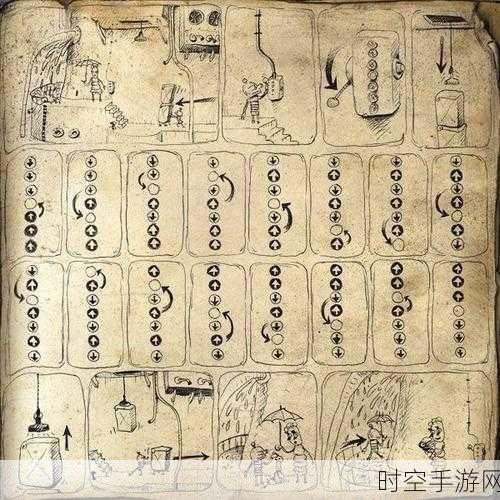 时空手游网